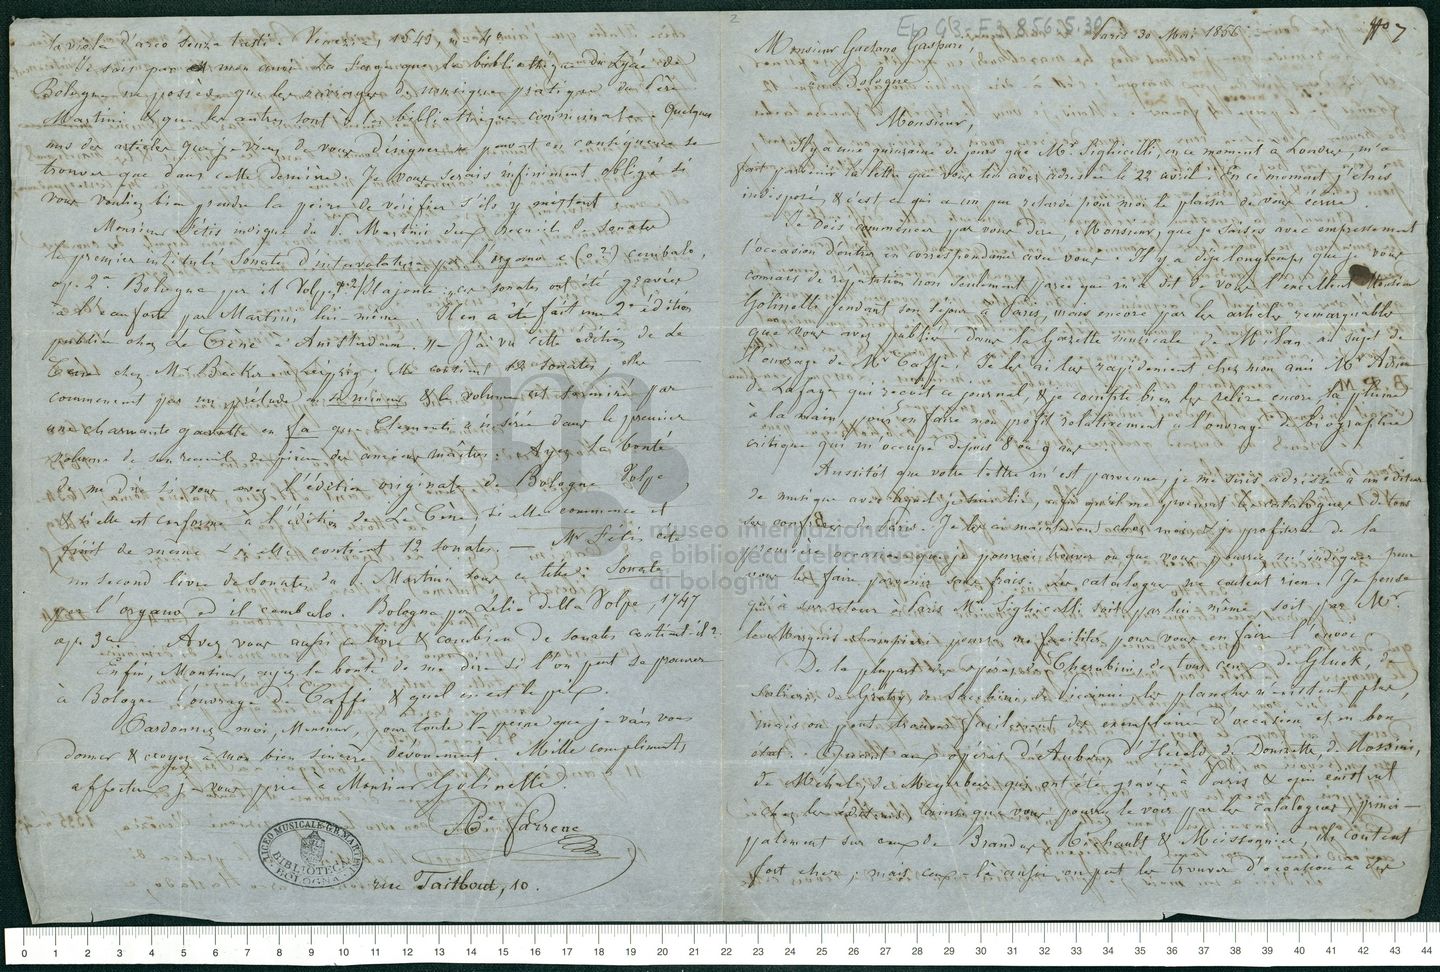 Ep. G3-E3.856.5.30
No 7
Paris 30 Mai 1856
Monsieur Gaetano Gaspari,
Bologne
Monsieur,
Il y a une quinzaine de jours que Mr. Sighicelli, en ce moment à Londres m'a
fait parvenir la lettre que vous lui avez adressée le 22 avril. En ce moment j'étais
indisposé, & c'est ce qui a un peu retardé pour moi le plaisir de vous écrire.
Je dois commencer par vous dire, Monsieur, que je saisis avec empressement
l'occasion d'entrer en correspondance avec vous. Il y a déjà longtemps que je vous
connais de réputation non seulement parce que m'a dit de vous l'excellent Monsieur
Golinelli pendant son séjour à Paris, mais encore par les articles remarquables
que vous avez publiés dans la Gazette musicale de Milan au sujet de
l'ouvrage de Mr. Caffi. Je les ai lus rapidement chez mon ami Mr. Adrien
de Lafage qui reçoit ce journal, & je compte bien les relire encore la plume
à la main, pour en faire mon profit relativement à l'ouvrage de biographie
critique qui m'occupe depuis 8 ou 9 ans.
Aussitôt que votre lettre m'est parvenue je me suis adressé à un éditeur
de musique avec lequel je suis lié, pour qu'il me procurât les catalogues de tous
ses confrères de Paris. Je les ai maintenant chez moi & je profiterai de la
première occasion que je pourrai trouver ou que vous pourrez m'indiquer pour
vous les faire parvenir sans frais. Les catalogues ne coutent rien. Je pense
qu'à son retour à Paris Mr. Sighicelli soit par lui même, soit par Mr.
le Marquis Sampieri pourra me faciliter pour vous en faire l'envoi.
De la plupart des opéras de Cherubini, de tous ceux de Gluck, de
Salieri, de Grétry, de Sacchini, de Piccinni, les planches n'existent plus,
mais on peut trouver facilement des exemplaires d'occasion et en bon
état. Quant aux opéras d'Auber, d'Hérold, de Donizetti, de Rossini,
de Méhul, de Meyerbeer qui ont été gravés à Paris & qui existent
chez les éditeurs, ainsi que vous pourrez le voir par les catalogues princi-
palement sur ceux de Brandus, Richault & Meissonnier, ils coutent
fort cher, mais ceux-là aussi on peut les trouver d'occasion à des
la viola d'arco senza tasti. Venezia, 1543, in 4º
Je sais par mon ami La Fage que la bibliothèque du Lycée de
Bologne ne possède que les ouvrages de musique pratique du Père
Martini & que les autres sont à la bibliothèque communale. Quelques
uns des articles que je viens de vous désigner ne peuvent en conséquence se
trouver que dans cette dernière. Je vous serais infiniment obligé si
vous vouliez bien prendre la peine de vérifier s'ils y existent.
Monsieur Fétis indique du P. Martini deux recueils de sonates
le premier intitulé Sonate d'intavolatura per l'organo e (o?) cembalo,
op. 2a Bologna per il Volpe. Il ajoute: ces sonates ont été gravées
à l'eau forte par Martini lui même. Il en a été fait une 2e édition
publiée chez Le Cène à Amsterdam. J'ai vu cette édition de Le
Cène chez Mr. Becker à Leipzig. Elle contient 12 sonates, elle
commence par un prélude en la mineur & le volume est terminé par
une charmante gavotte en fa que Clementi a insérée dans le premier
volume de son recueil de pièces des anciens maîtres. Ayez la bonté
de me dire si vous avez l'édition originale de Bologne Volpe
& si elle est conforme à l'édition de Le Cène, si elle commence et
finit de même & si elle contient 12 sonates. — Mr Fétis cite
un second livre de Sonates du P. Martini sous ce titre: Sonate
per l'organo ed il cembalo. Bologna per Lelio della Volpe, 1747
op. 3a. Avez vous aussi ce livre & combien de sonates contient-il?
Enfin, Monsieur, ayez la bonté de me dire si l'on peut se procurer
à Bologne l'ouvrage de Caffi, & quel en est le prix.
Pardonnez-moi, Monsieur, pour toute la peine que je vais vous
donner & croyez à mon bien sincère dévouement. Mille compliments
affectueux je vous prie à Monsieur Golinelli.
Farrenc
rue Taitbout, 10.
LICEO MUSICALE G.B. MARTINI
BIBLIOTECA
BOLOGNA
museo internazionale
e biblioteca della musica
di bologna
0 1 2 3 4 5 6 7 8 9 10 11 12 13 14 15 16 17 18 19 20 21 22 23 24 25 26 27 28 29 30 31 32 33 34 35 36 37 38 39 40 41 42 43 44